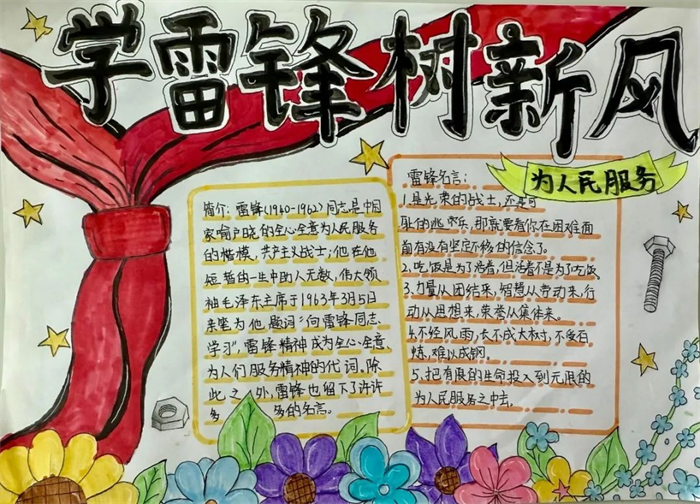 学雷锋树新风
为人民服务
简介：雷锋(1940-1962)同志是中国
家喻户晓的全心全意为人民服务
的楷模、共产主义战士；他在他
短暂的一生中助人无数，伟大领
袖毛泽东主席于1963年3月5日
亲笔为他题词“向雷锋同志
学习”，雷锋精神成为全心全意
为人们服务精神的代词，除
此之外，雷锋也留下了许许
多多的名言。
雷锋名言：
1.是光荣的战士，还是可
耻的逃兵，那就要看你在困难面
前有没有坚定不移的信念了。
2.吃饭是为了活着，但活着不是为了吃饭
3.力量从团结来，智慧从劳动来，行
动从思想来，荣誉从集体来。
4.不经风雨，长不成大树，不受百
炼，难以成钢。
5.把有限的生命投入到无限的
为人民服务之中去。